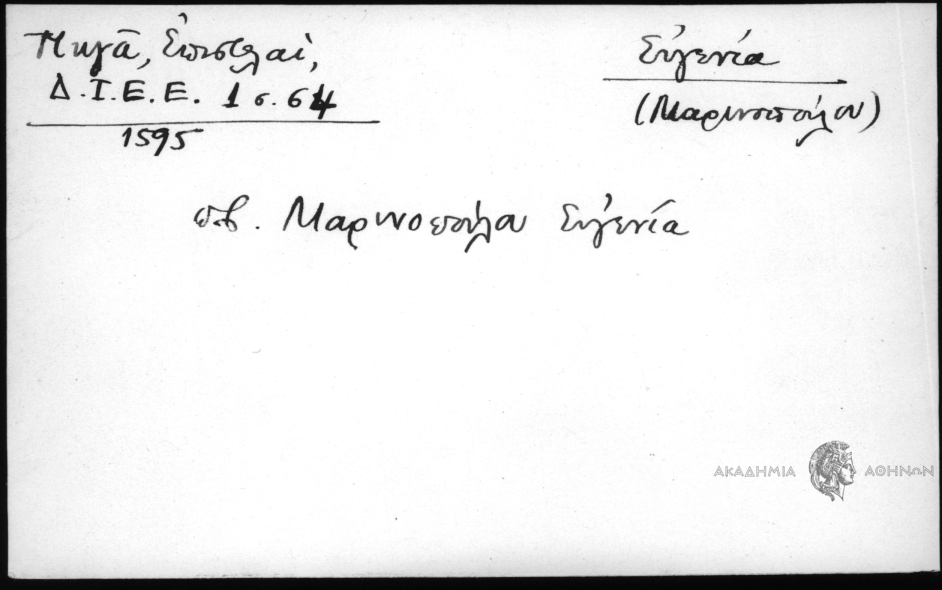 Πηγᾶ, Ἐπιστολαί,
Δ.Ι.Ε.Ε. 1 σ. 64
1595
Εὐγενία
(Μαρινοπούλου)
πβ. Μαρινοπούλου Εὐγενία
ΑΚΑΔΗΜΙΑ ΑΘΗΝΩΝ